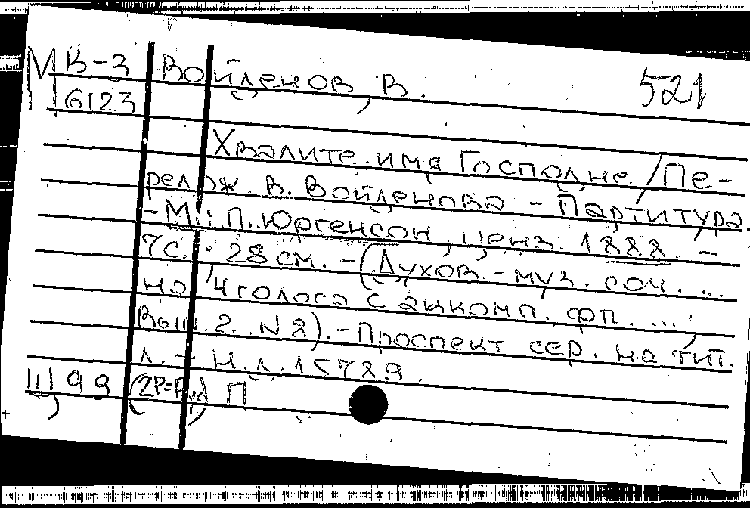 М В-3 Войденов, В. 521
6123
Хвалите имя Господне / Пе-
релож. В. Войденова - Партитура.
- М.: П. Юргенсон, ценз. 1888. -
7с.; 28 см. - (Духов.-муз. соч. ...
на 4 голоса с аккомп. фп. ...;
Вып. 2. N 8). - Проспект сер. на тит.
л. - Н.д. 15789.
III, 99 П